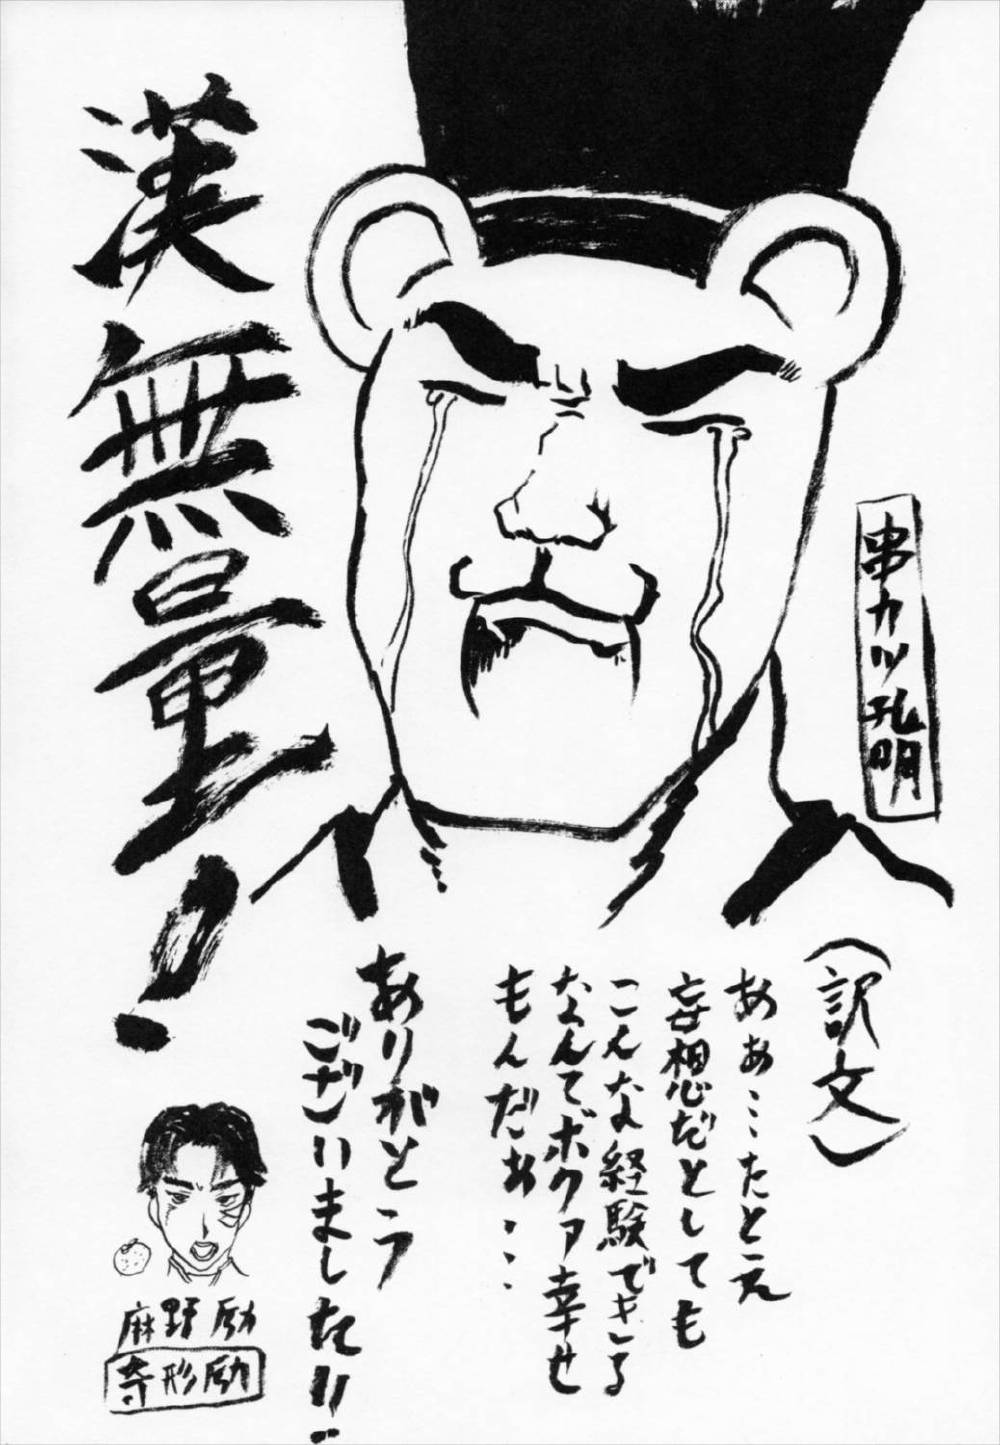 串カツ孔明
漢無量！
（訳文）
ああ…たとえ
妄想だとしても
こんな経験できる
なんてボクァ幸せ
もんだぁ…
ありがとう
ございました！！
麻野励
寺形励